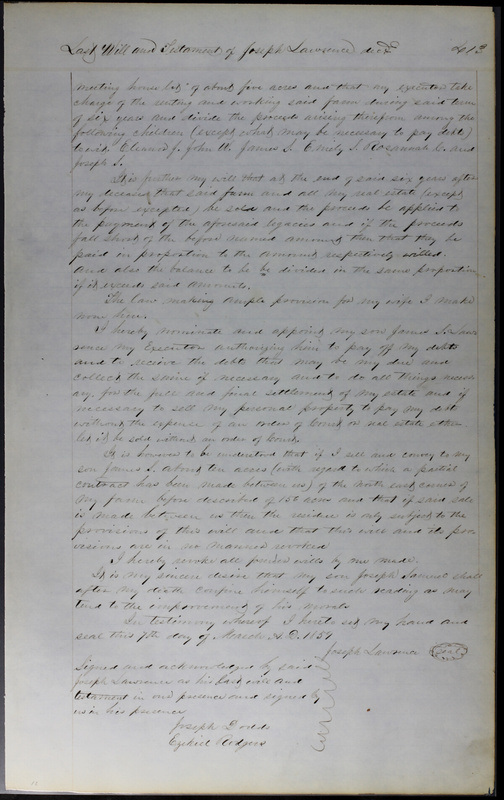 Last Will and Testament of Joseph Lawrence dec'd 413
meeting house lot, of about five acres and that my executor take
charge of the renting and working said farm during said term
of six years and divide the proceeds arising therefrom among the
following children (except what may be necessary to pay debts)
to wit. Eleanor J. John W. James S. Emily J. Rosannah G. and
Joseph S.
It is further my will that at the end of said six years after
my decease that said farm and all my real estate (except
as before excepted) be sold and the proceeds be applied to
the payment of the aforesaid legacies and if the proceeds
fall short of the before named amounts then that they be
paid in proportion to the amounts respectively willed.
And also the balance to be be divided in the same proportion
if it exceeds said amounts.
The law making ample provision for my wife I make
none here.
I hereby nominate and appoint my son James S. Law-
rence my Executor authorizing him to pay off my debts
and to receive the debts that may be my due and
collect the same if necessary and to do all things necess-
ary for the full and final settlement of my estate and if
necessary to sell my personal property to pay my debts
without the expense of an order of Court or real estate other
let it be sold without an order of Court.
It is however to be understood that if I sell and convey to my
son James S. about ten acres (with regard to which a partial
contract has been made between us) of the north east corner of
my farm before described of 152 acres and that if said sale
is made between us then the residue is only subject to the
provisions of this will and that this will and its pro-
visions are in no manner revoked
I hereby revoke all former wills by me made.
It is my sincere desire that my son Joseph Samuel shall
after my death confine himself to such reading as may
tend to the improvement of his morals
In testimony whereof I hereto set my hand and
seal this 7th day of March A.D. 1859
Joseph Lawrence seal
Signed and acknowledged by said
Joseph Lawrence as his last will and
testament in our presence and signed by
us in his presence
Joseph Dodds
Ezekiel Rodgers